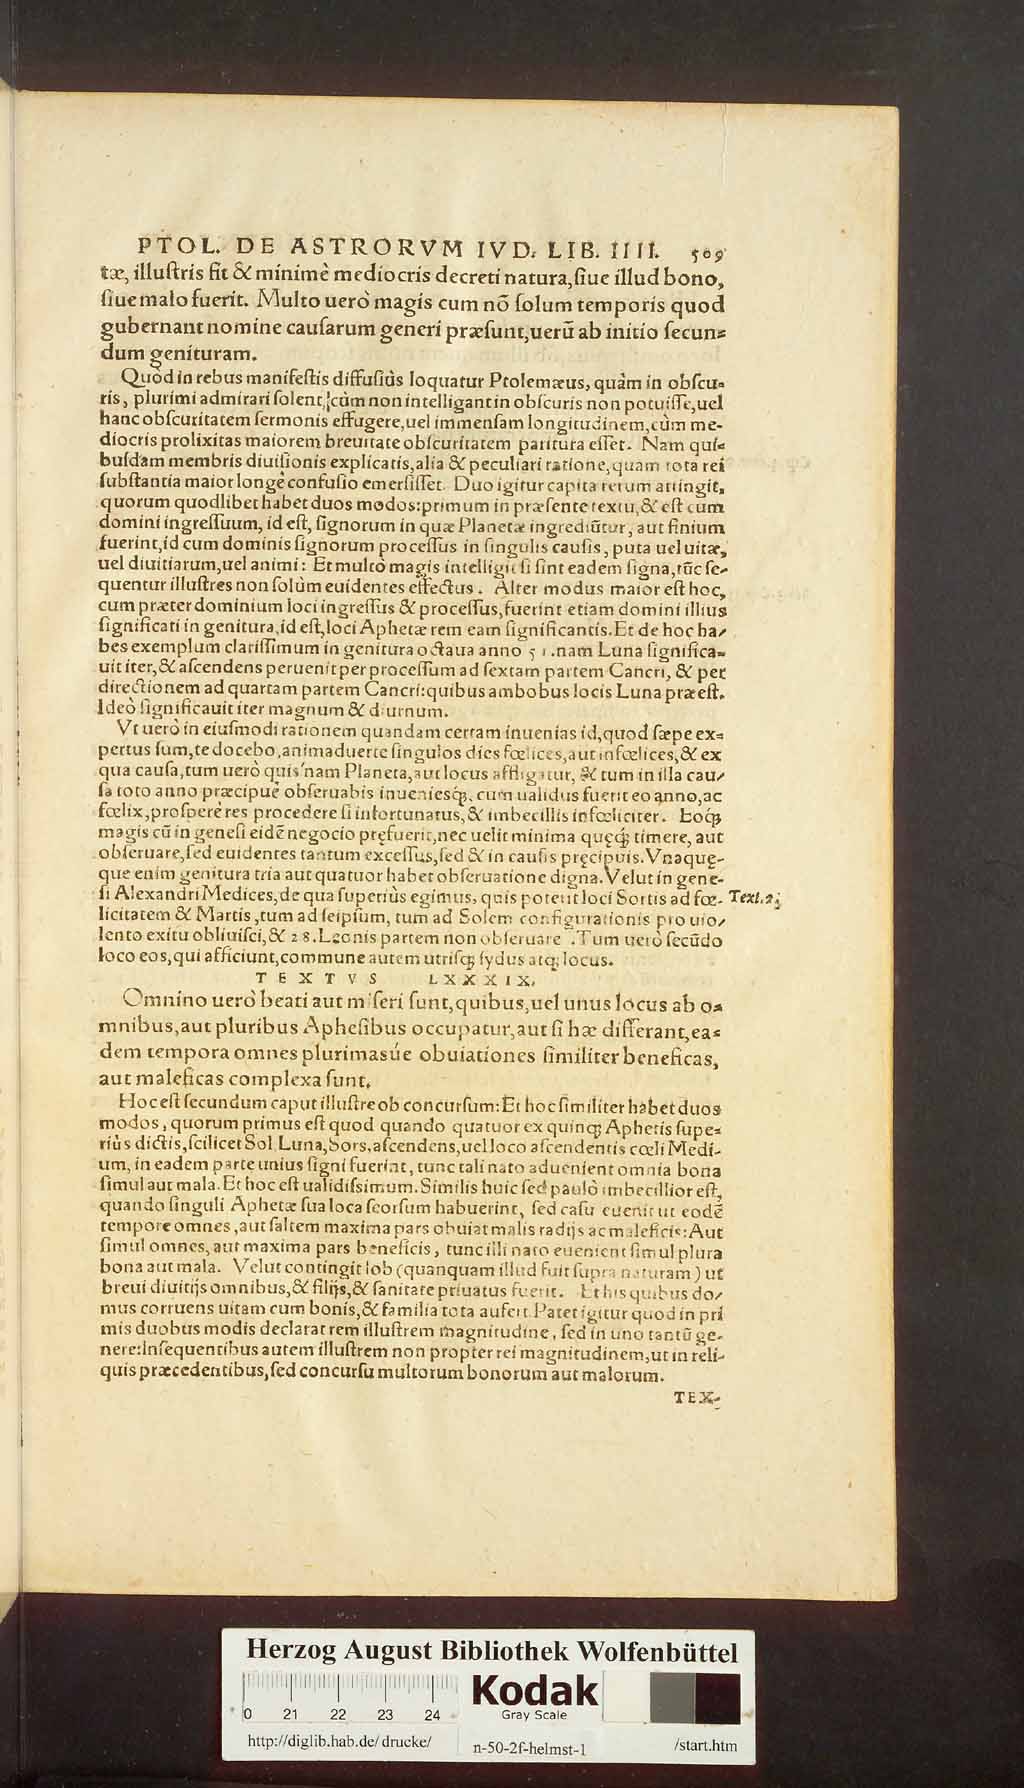 PTOL. DE ASTRORVM IVD. LIB. IIII. 509
tæ, illuſtris fit & minimè mediocris decreti natura, ſiue illud bono,
ſiue malo fuerit. Multo uerò magis cum nō ſolum temporis quod
gubernant nomine cauſarum generi præſunt, uerū ab initio ſecun=
dum genituram.
Quòd in rebus manifeſtis diffuſiùs loquatur Ptolemæus, quàm in obſcu=
ris, plurimi admirari ſolent, cùm non intelligant in obſcuris non potuiſſe, uel
hanc obſcuritatem ſermonis effugere, uel immenſam longitudinem, cùm me-
diocris prolixitas maiorem breuitate obſcuritatem paritura eſſet. Nam qui=
buſdam membris diuiſionis explicatis, alia & peculiari ratione, quam tota rei
ſubſtantia maior longè confuſio emerſiſſet. Duo igitur capita rerum attingit,
quorum quodlibet habet duos modos: primum in præſente textu, & eſt cum
domini ingreſſuum, id eſt, ſignorum in quæ Planetæ ingrediūtur, aut finium
fuerint, id cum dominis ſignorum proceſſus in ſingulis cauſis, puta uel uitæ,
uel diuitiarum, uel animi: Et multò magis intelligit ſi ſint eadem ſigna, tūc ſe-
quentur illuſtres non ſolùm euidentes effectus. Alter modus maior eſt hoc,
cum præter dominium loci ingreſſus & proceſſus, fuerint etiam domini illius
ſignificati in genitura, id eſt, loci Aphetæ rem eam ſignificantis. Et de hoc ha-
bes exemplum clariſſimum in genitura octaua anno 51. nam Luna ſignifica=
uit iter, & aſcendens peruenit per proceſſum ad ſextam partem Cancri, & per
directionem ad quartam partem Cancri: quibus ambobus locis Luna præeſt.
Ideò ſignificauit iter magnum & diurnum.
Vt uerò in eiuſmodi rationem quandam certam inuenias id, quod ſæpe ex=
pertus ſum, te docebo, animaduerte ſingulos dies fœlices, aut infœlices, & ex
qua cauſa, tum uerò quis nam Planeta, aut locus affligatur, & tum in illa cau-
ſa toto anno præcipuè obſeruabis inuenieſq́;, cum ualidus fuerit eo anno, ac
fœlix, proſperè res procedere ſi infortunatus, & imbecillis infœliciter. Eoq́;
magis cū in geneſi eidē negocio pręfuerit, nec uelit minima quęq́; timere, aut
obſeruare, ſed euidentes tantum exceſſus, ſed & in cauſis pręcipuis. Vnaquę-
que enim genitura tria aut quatuor habet obſeruatione digna. Velut in gene-
ſi Alexandri Medices, de qua ſuperiùs egimus, quis poterit loci Sortis ad fœ- Text. 2
licitatem & Martis, tum ad ſeipſum, tum ad Solem configurationis pro uio-
lento exitu obliuiſci, & 28. Leonis partem non obſeruare. Tum uerò ſecūdo
loco eos, qui afficiunt, commune autem utriſq; ſydus atq; locus.
TEXTVS LXXXIX.
Omnino uerò beati aut miſeri ſunt, quibus, uel unus locus ab o=
mnibus, aut pluribus Apheſibus occupatur, aut ſi hæ differant, ea=
dem tempora omnes plurimasúe obuiationes ſimiliter beneficas,
aut maleficas complexa ſunt.
Hoc eſt ſecundum caput illuſtre ob concurſum: Et hoc ſimiliter habet duos
modos, quorum primus eſt quod quando quatuor ex quinq; Aphetis ſupe=
riùs dictis, ſcilicet Sol, Luna, Sors, aſcendens, uel loco aſcendentis cœli Medi-
um, in eadem parte unius ſigni fuerint, tunc tali nato aduenient omnia bona
ſimul aut mala. Et hoc eſt ualidiſsimum. Similis huic ſed paulò imbecillior eſt,
quando ſinguli Aphetæ ſua loca ſeorſum habuerint, ſed caſu euenit ut eodē
tempore omnes, aut ſaltem maxima pars obuiat malis radijs ac maleficis: Aut
ſimul omnes, aut maxima pars beneficis, tunc illi nato euenient ſimul plura
bona aut mala. Velut contingit Iob (quanquam illud fuit ſupra naturam) ut
breui diuitijs omnibus, & filijs, & ſanitate priuatus fuerit. Et his quibus do-
mus corruens uitam cum bonis, & familia tota aufert. Patet igitur quod in pri
mis duobus modis declarat rem illuſtrem magnitudine, ſed in uno tantū ge-
nere: Inſequentibus autem illuſtrem non propter rei magnitudinem, ut in reli-
quis præcedentibus, ſed concurſu multorum bonorum aut malorum.
TEX-
Herzog August Bibliothek Wolfenbüttel
0 21 22 23 24
Kodak
Gray Scale
http://diglib.hab.de/drucke/ n-50-2f-helmst-1 /start.htm